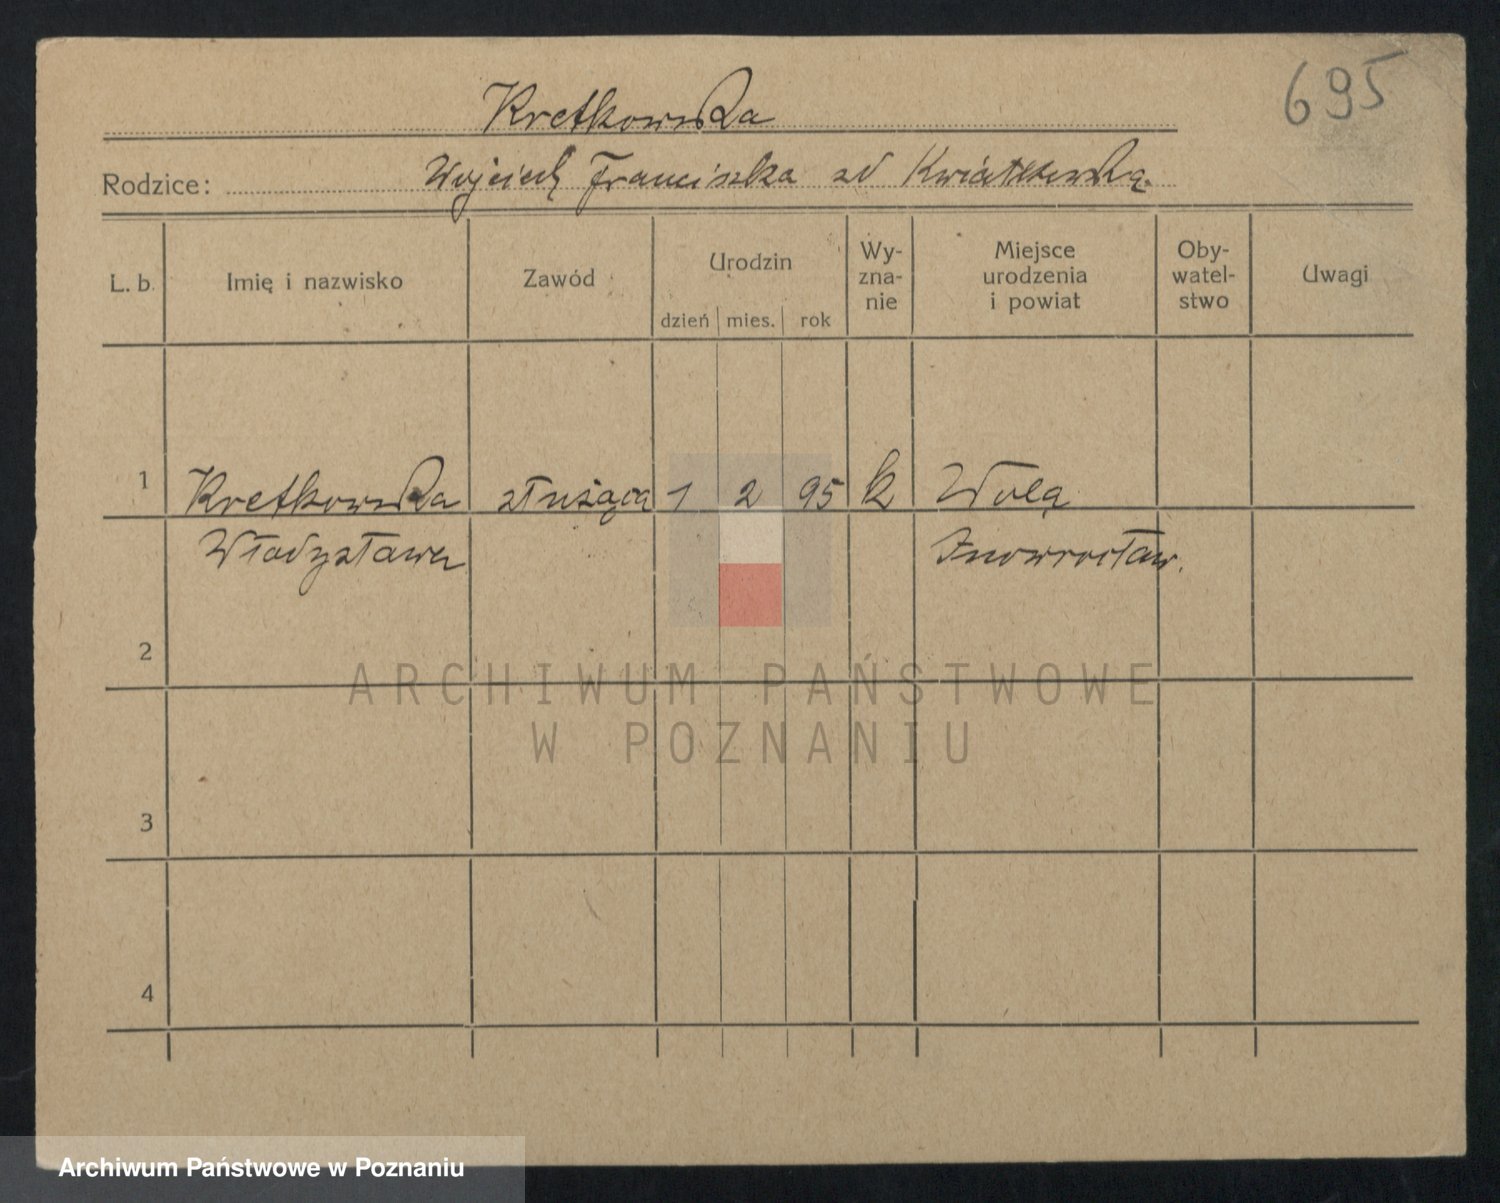 695
Kretkowska
Rodzice: Wojciech Franciszka zd Kwiatkowską.
L. b. Imię i nazwisko Zawód Urodzin dzień mies. rok Wy-zna-nie Miejsce urodzenia i powiat Oby-watel-stwo Uwagi
1 Kretkowska służąca 1 2 95 k Wolą
Władysława Inowrocław.
2
ARCHIWUM PAŃSTWOWE
W POZNANIU
3
4
Archiwum Państwowe w Poznaniu